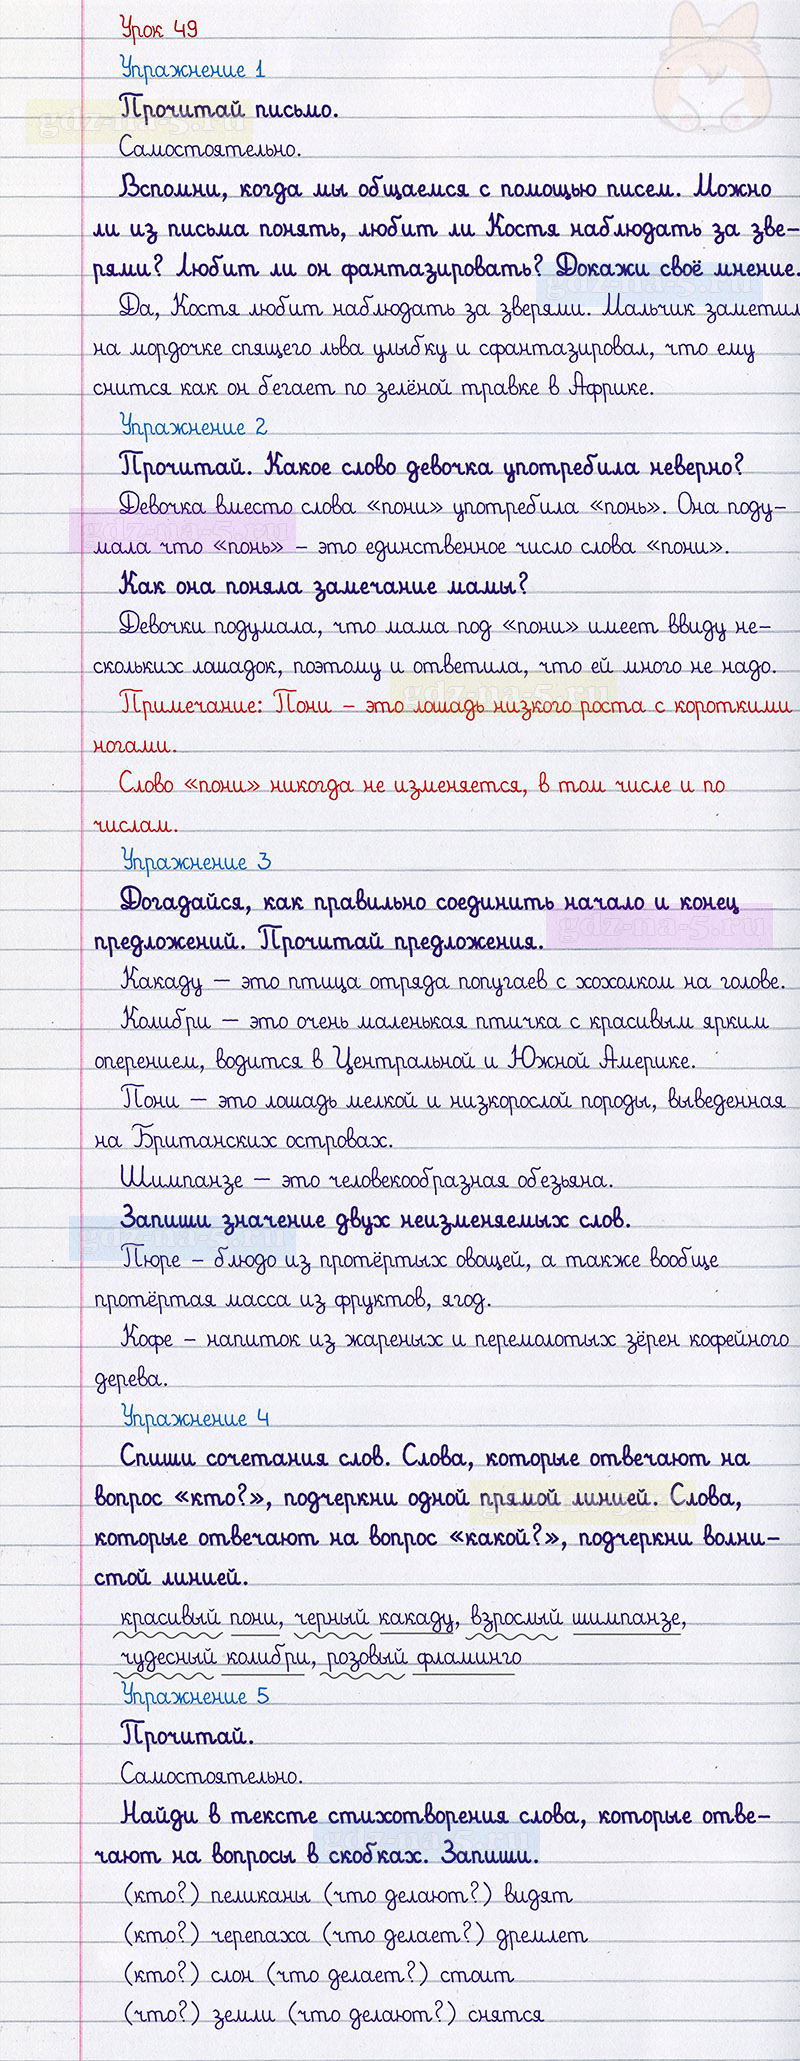 Урок 49
Упражнение 1
Прочитай письмо.
Самостоятельно.
Вспомни, когда мы общаемся с помощью писем. Можно
ли из письма понять, любит ли Костя наблюдать за зве-
рями? Любит ли он фантазировать? Докажи своё мнение.
Да, Костя любит наблюдать за зверями. Мальчик заметил
на мордочке спящего льва улыбку и сфантазировал, что ему
снится как он бегает по зелёной травке в Африке.
Упражнение 2
Прочитай. Какое слово девочка употребила неверно?
Девочка вместо слова «пони» употребила «понь». Она поду-
мала что «понь» – это единственное число слова «пони».
Как она поняла замечание мамы?
Девочки подумала, что мама под «пони» имеет ввиду не-
скольких лошадок, поэтому и ответила, что ей много не надо.
Примечание: Пони – это лошадь низкого роста с короткими
ногами.
Слово «пони» никогда не изменяется, в том числе и по
числам.
Упражнение 3
Догадайся, как правильно соединить начало и конец
предложений. Прочитай предложения.
Какаду — это птица отряда попугаев с хохолком на голове.
Колибри — это очень маленькая птичка с красивым ярким
оперением, водится в Центральной и Южной Америке.
Пони — это лошадь мелкой и низкорослой породы, выведенная
на Британских островах.
Шимпанзе — это человекообразная обезьяна.
Запиши значение двух неизменяемых слов.
Пюре – блюдо из протёртых овощей, а также вообще
протёртая масса из фруктов, ягод.
Кофе – напиток из жареных и перемолотых зёрен кофейного
дерева.
Упражнение 4
Спиши сочетания слов. Слова, которые отвечают на
вопрос «кто?», подчеркни одной прямой линией. Слова,
которые отвечают на вопрос «какой?», подчеркни волни-
стой линией.
красивый пони, черный какаду, взрослый шимпанзе,
чудесный колибри, розовый фламинго
Упражнение 5
Прочитай.
Самостоятельно.
Найди в тексте стихотворения слова, которые отве-
чают на вопросы в скобках. Запиши.
(кто?) пеликаны (что делают?) видят
(кто?) черепаха (что делает?) дремлет
(кто?) слон (что делает?) стоит
(что?) земли (что делают?) снятся
gdz-na-5.ru
gdz-na-5.ru
gdz-na-5.ru
gdz-na-5.ru
gdz-na-5.ru
gdz-na-5.ru
gdz-na-5.ru
gdz-na-5.ru